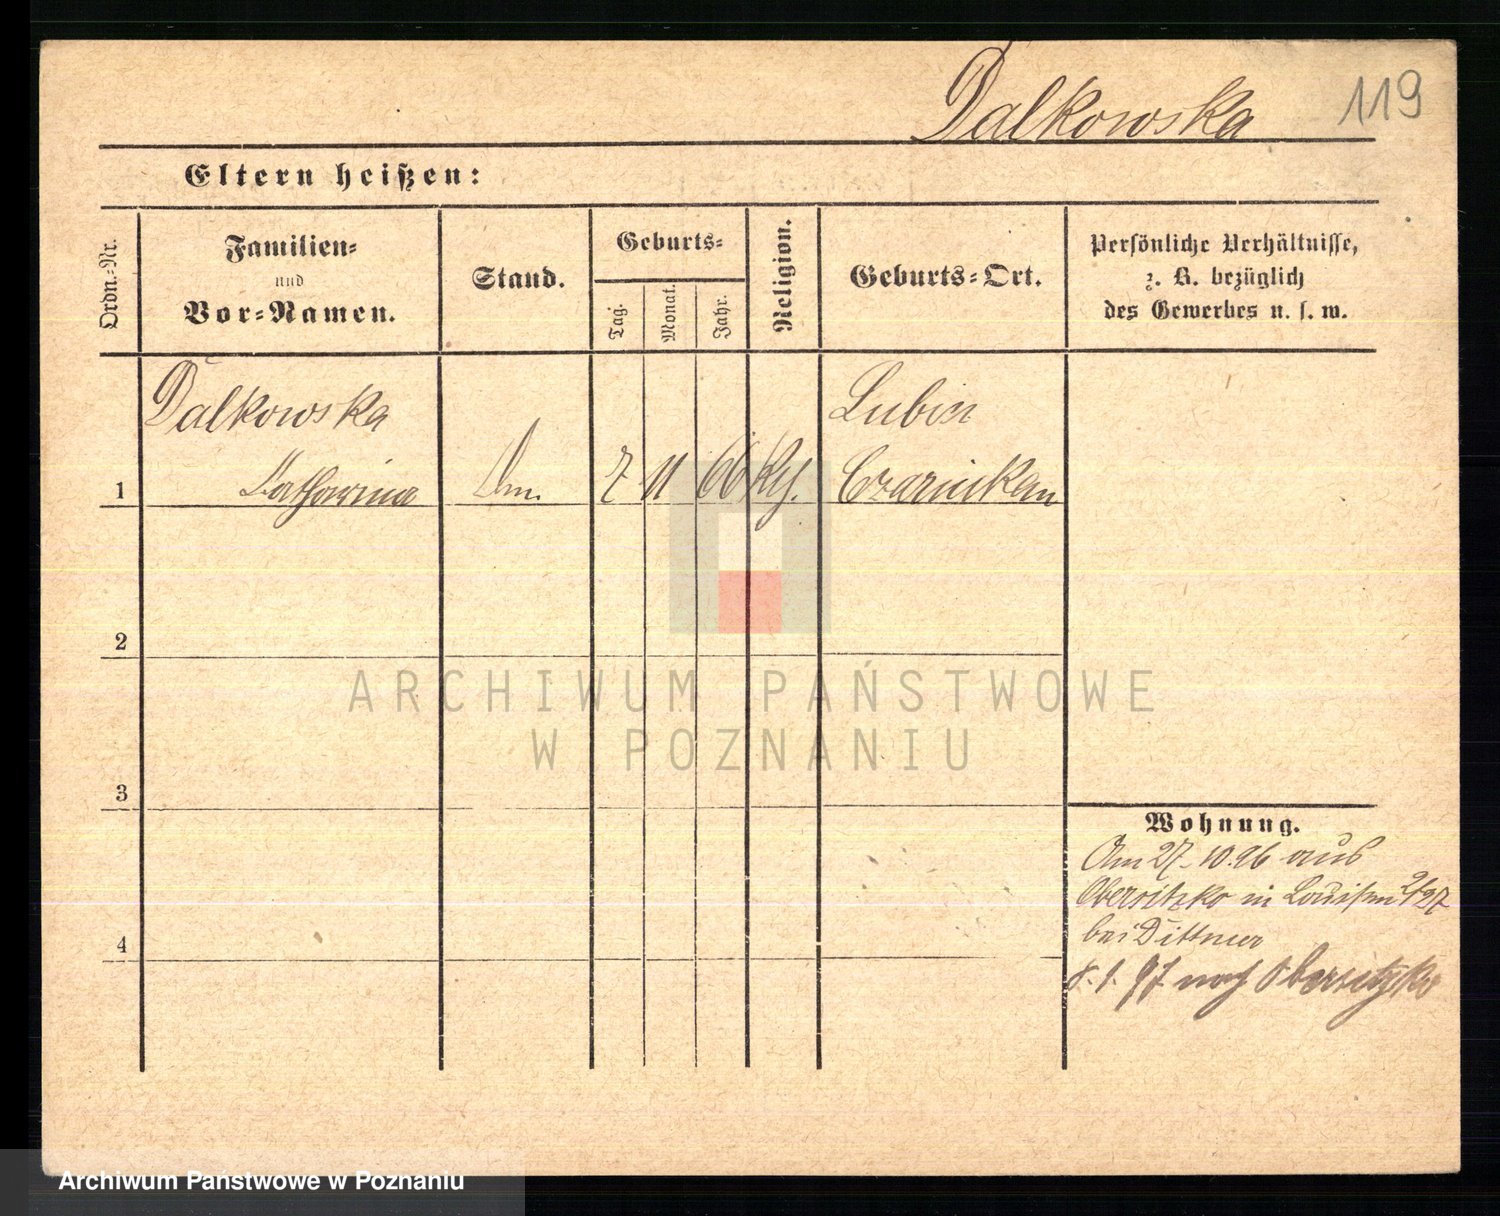 Dalkowska
119
Eltern heißen:
Ordn.-Nr.
Familien-
und
Vor-Namen.
Stand.
Geburts-
Tag.
Monat.
Jahr.
Religion.
Geburts-Ort.
Persönliche Verhältnisse,
z. B. bezüglich
des Gewerbes u. s. w.
Dalkowska
Katharina
7 11 66
Lubcz
Czarnikau
1
2
3
4
ARCHIWUM PAŃSTWOWE
W POZNANIU
Wohnung.
Am 27.10.96 aus
Obersitzko in Louisen 2/27
bei Dittmer
8.1.97 nach Obersitzko
Archiwum Państwowe w Poznaniu